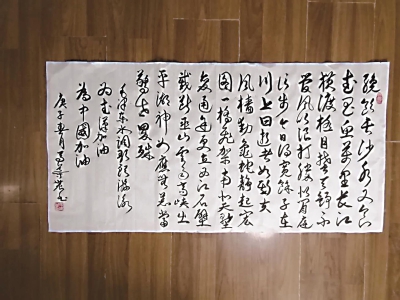 纔饮长沙水又食
武昌鱼万里长江
横渡极目楚天舒不
管风吹浪打胜似闲庭
信步今日得宽馀子在
川上曰逝者如斯夫
风樯动龟蛇静起宏
图一桥飞架南北天堑
变通途更立西江石壁
截断巫山云雨高峡出
平湖神女应无恙当
惊世界殊
毛泽东水调歌头游泳
为武汉加油
為中國加油
庚子春月